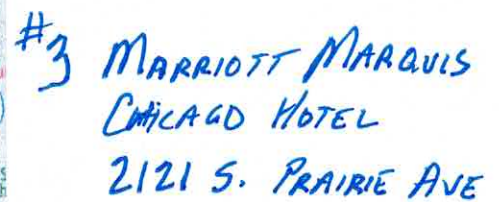 #3 MARRIOTT MARQUIS
CHICAGO HOTEL
2121 S. PRAIRIE AVE